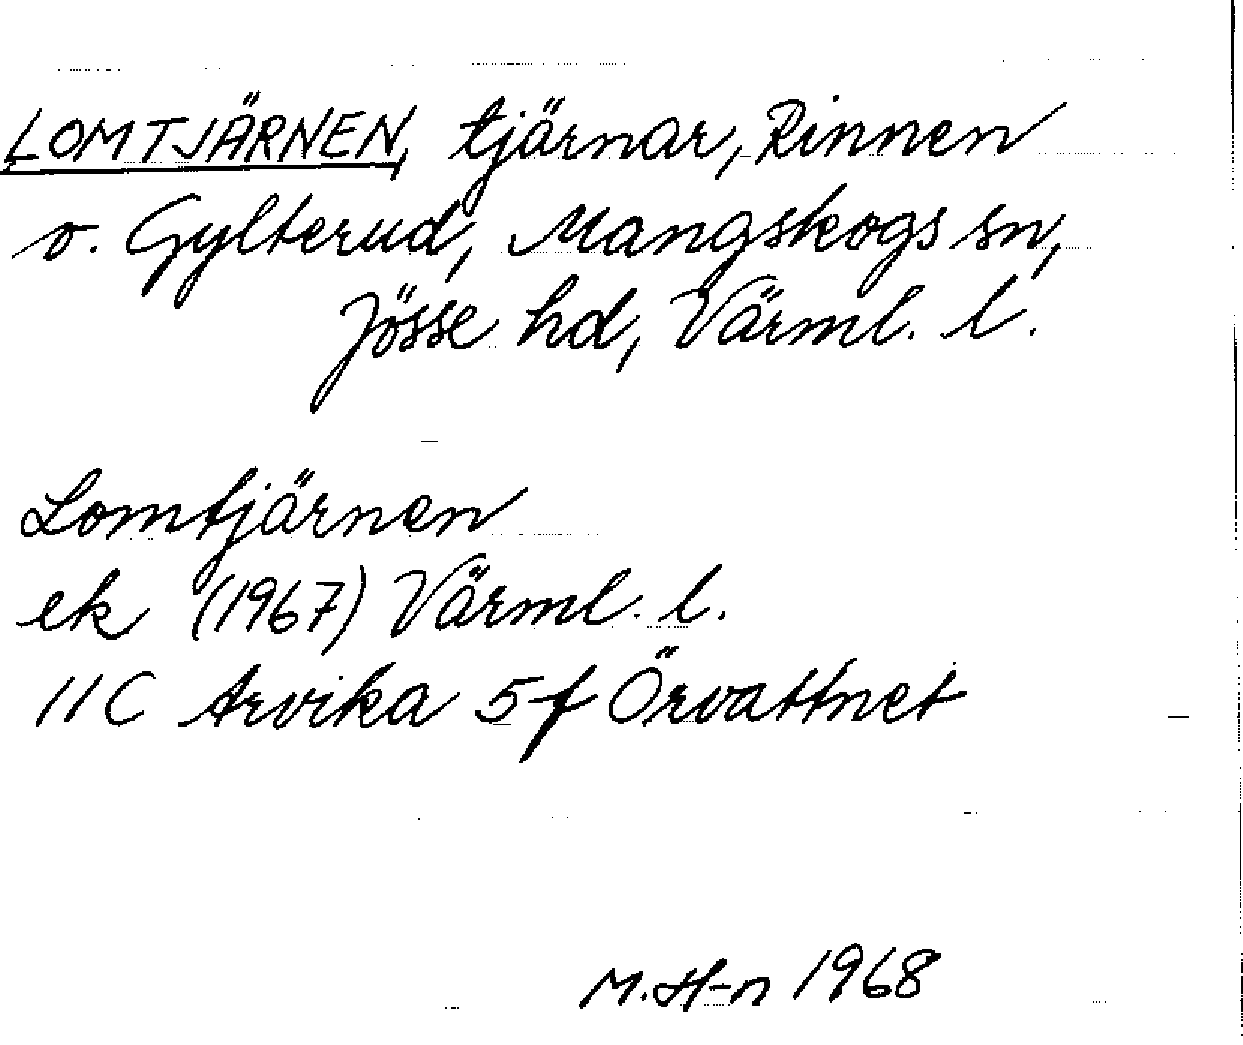 LOMTJÄRNEN, tjärnar, Rinnen
o. Gylterud, Mangskogs sn,
Jösse hd, Värml. l.
Lomtjärnen
ek (1967) Värml. l.
11C Arvika 5f Örvattnet
M. H-n 1968